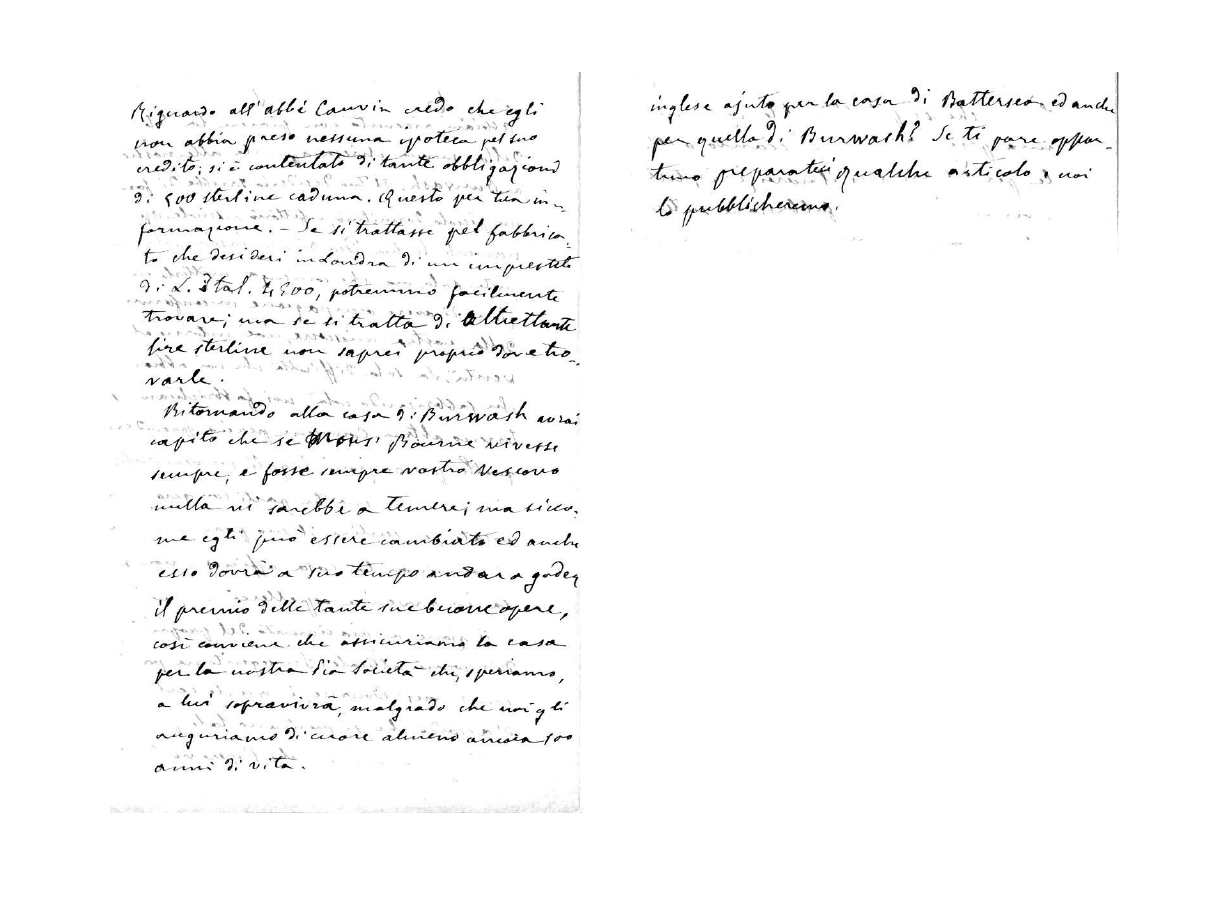 Riguardo all'abbé Cauvin credo che egli
non abbia preso nessuna ipoteca pel suo
credito; si è contentato di tante obbligazioni
di 500 sterline caduna. Questo per tua in-
formazione. - Se si trattasse pel fabbrica-
to che desideri in Londra di un imprestito
di L. Ital. 4500, potremmo facilmente
trovare; ma se si tratta di altrettante
lire sterline non saprei proprio dove tro-
varle.
Ritornando alla casa di Burwash avrai
capito che se Mons. Bourne vivesse
sempre, e fosse sempre vostro Vescovo
nulla vi sarebbe a temere; ma sicco-
me egli può essere cambiato ed anche
esso dovrà a suo tempo andar a goder
il premio delle tante sue buone opere,
così conviene che assicuriamo la casa
per la nostra Pia Società che, speriamo,
a lui sopravivrà, malgrado che noi gli
auguriamo di cuore almeno ancora 100
anni di vita.
inglese ajuto per la casa di Battersea ed anche
per quella di Burwash? Se ti pare oppor-
tuno preparateci qualche articolo e noi
lo pubblicheremo.